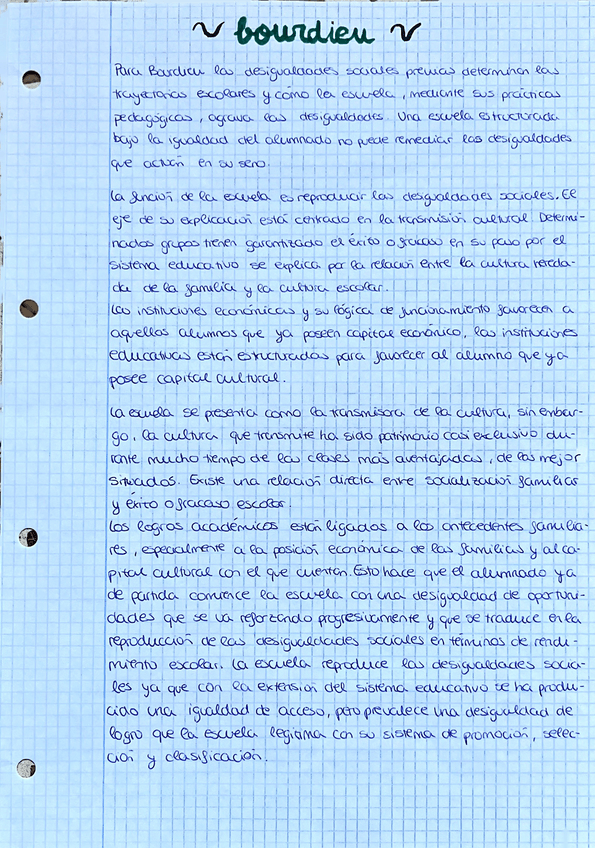 bourdieu
Para Bordieu las desigualdades sociales previas determinan las
trayectorias escolares y cómo la escuela, mediante sus prácticas
pedagógicas, agrava las desigualdades. Una escuela estructurada
bajo la igualdad del alumnado no puede remediar las desigualdades
que actúan en su seno.
La función de la escuela es reproducir las desigualdades sociales. El
eje de su explicación está centrado en la transmisión cultural. Determi-
nados grupos tienen garantizado el éxito o fracaso en su paso por el
sistema educativo se explica por la relación entre la cultura hereda-
da de la familia y la cultura escolar.
Las instituciones económicas y su lógica de funcionamiento favorecen a
aquellos alumnos que ya poseen capital económico, las instituciones
educativas están estructuradas para favorecer al alumno que ya
posee capital cultural.
La escuela se presenta como la transmisora de la cultura, sin embar-
go, la cultura que transmite ha sido patrimonio casi exclusivo du-
rante mucho tiempo de las clases más aventajadas, de las mejor
situados. Existe una relación directa entre socialización familiar
y éxito o fracaso escolar.
Los logros académicos están ligados a los antecedentes familia-
res, especialmente a la posición económica de las familias y al ca-
pital cultural con el que cuentan. Esto hace que el alumnado ya
de partida comience la escuela con una desigualdad de oportuni-
dades que se va reforzando progresivamente y que se traduce en la
reproducción de las desigualdades sociales en términos de rendi-
miento escolar. La escuela reproduce las desigualdades socia-
les ya que con la extensión del sistema educativo se ha produ-
cido una igualdad de acceso, pero prevalece una desigualdad de
logro que la escuela legitima con su sistema de promoción, selec-
ción y clasificación.